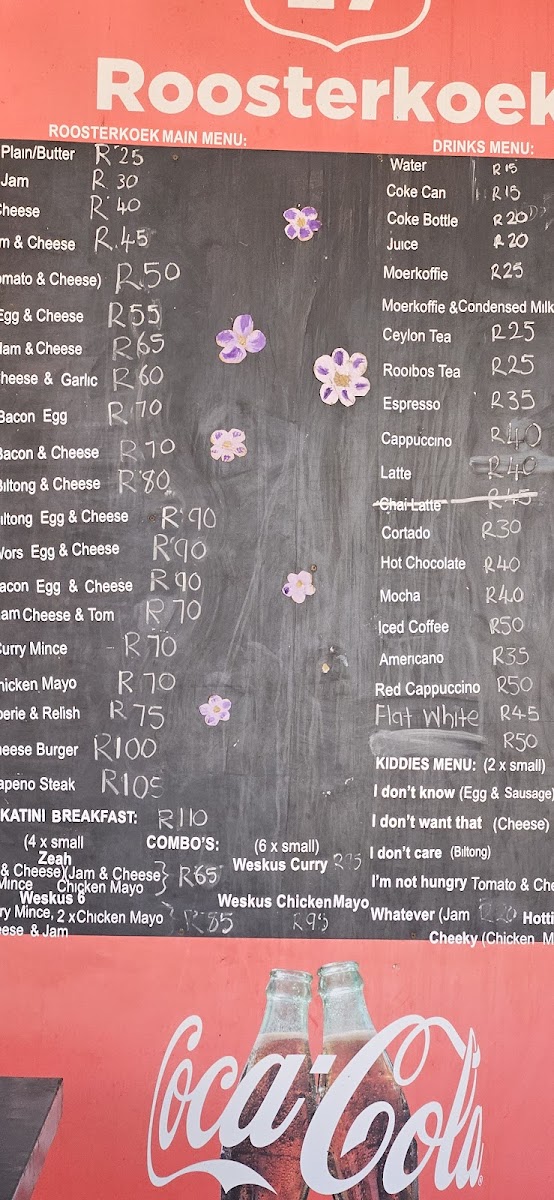 27
Roosterkoek
ROOSTERKOEK MAIN MENU:
Plain/Butter R 25
Jam R 30
Cheese R 40
m & Cheese R 45
omato & Cheese) R50
Egg & Cheese R55
Ham & Cheese R65
Cheese & Garlic R60
Bacon Egg R 70
Bacon & Cheese R 70
Biltong & Cheese R 80
iltong Egg & Cheese R 90
Wors Egg & Cheese R 90
acon Egg & Cheese R 90
am Cheese & Tom R 70
Curry Mince - R 70
hicken Mayo R 70
erie & Relish R 75
heese Burger R100
apeno Steak R105
KATINI BREAKFAST: R110
(4 x small COMBO'S: (6 x small)
Zeah
& Cheese)(Jam & Cheese} R65
Mince Chicken Mayo
Weskus 6
ry Mince, 2 x Chicken Mayo } R85
eese & Jam
Weskus Curry R95
Weskus Chicken Mayo
R95
DRINKS MENU:
Water R 15
Coke Can R 15
Coke Bottle R 20
Juice R 20
Moerkoffie R25
Moerkoffie & Condensed Milk
Ceylon Tea R25
Rooibos Tea R25
Espresso R35
Cappuccino R40
Latte R40
Chai Latte R45
Cortado R30
Hot Chocolate R40
Mocha R40
Iced Coffee R50
Americano R35
Red Cappuccino R50
Flat White R45
R50
KIDDIES MENU: (2 x small)
I don't know (Egg & Sausage)
I don't want that (Cheese)
I don't care (Biltong)
I'm not hungry Tomato & Che
Whatever (Jam R20 Hotti
Cheeky (Chicken M
Coca-Cola